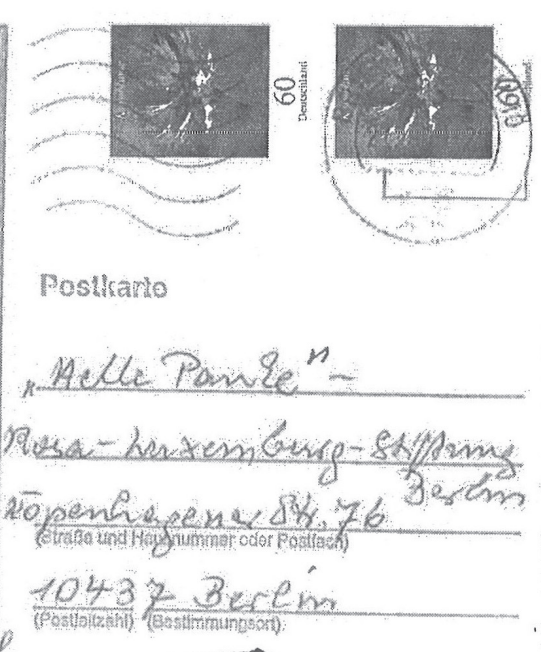 60
Deutschland
60
Postkarte
„Helle Panke" –
Rosa-Luxemburg-Stiftung
Berlin
Kopenhagener Str. 76
(Straße und Hausnummer oder Postfach)
10437 Berlin
(Postleitzahl) (Bestimmungsort)